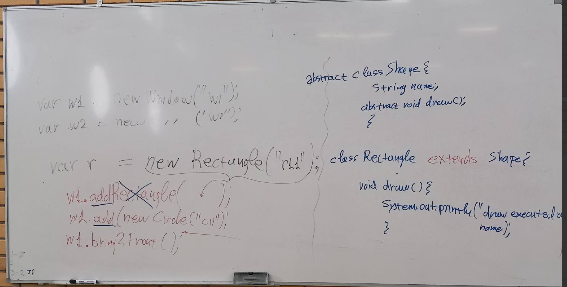 var w1 = new Window("w1");
var w2 = new ,, ("w2");
var r = new Rectangle("r1");
w1.addRectangle( );
w1.add(new Circle("c1");
w1.bring2Front();
abstract class Shape {
String name;
abstract void draw();
}
class Rectangle extends Shape {
void draw() {
System.out.println("draw executed
name);
}